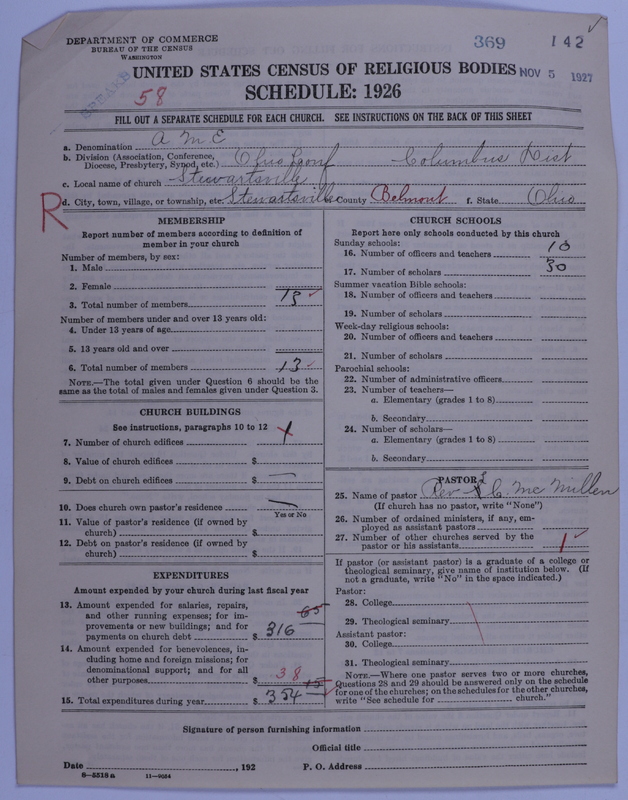 DEPARTMENT OF COMMERCE
BUREAU OF THE CENSUS
WASHINGTON
369
142
UNITED STATES CENSUS OF RELIGIOUS BODIES
NOV 5 1927
58
SCHEDULE: 1926
FILL OUT A SEPARATE SCHEDULE FOR EACH CHURCH. SEE INSTRUCTIONS ON THE BACK OF THIS SHEET
a. Denomination A M E
b. Division (Association, Conference, Diocese, Presbytery, Synod, etc.) Ohio Conf Columbus Dist
c. Local name of church Stewartsville
R
d. City, town, village, or township, etc. Stewartsville County Belmont f. State Ohio
MEMBERSHIP
Report number of members according to definition of
member in your church
Number of members, by sex:
1. Male
2. Female
3. Total number of members 13
Number of members under and over 13 years old:
4. Under 13 years of age
5. 13 years old and over
6. Total number of members 13
NOTE.—The total given under Question 6 should be the
same as the total of males and females given under Question 3.
CHURCH BUILDINGS
See instructions, paragraphs 10 to 12
7. Number of church edifices
8. Value of church edifices $
9. Debt on church edifices $
10. Does church own pastor's residence
Yes or No
11. Value of pastor's residence (if owned by
church) $
12. Debt on pastor's residence (if owned by
church) $
EXPENDITURES
Amount expended by your church during last fiscal year
13. Amount expended for salaries, repairs,
and other running expenses; for im-
provements or new buildings; and for
payments on church debt $ 316 65
14. Amount expended for benevolences, in-
cluding home and foreign missions; for
denominational support; and for all
other purposes $ 38
15. Total expenditures during year $ 354 15
CHURCH SCHOOLS
Report here only schools conducted by this church
Sunday schools:
16. Number of officers and teachers 10
17. Number of scholars 30
Summer vacation Bible schools:
18. Number of officers and teachers
19. Number of scholars
Week-day religious schools:
20. Number of officers and teachers
21. Number of scholars
Parochial schools:
22. Number of administrative officers
23. Number of teachers—
a. Elementary (grades 1 to 8)
b. Secondary
24. Number of scholars—
a. Elementary (grades 1 to 8)
b. Secondary
PASTOR
25. Name of pastor Rev C. McMillen
(If church has no pastor, write "None")
26. Number of ordained ministers, if any, em-
ployed as assistant pastors
27. Number of other churches served by the
pastor or his assistants 1
If pastor (or assistant pastor) is a graduate of a college or
theological seminary, give name of institution below. (If
not a graduate, write "No" in the space indicated.)
Pastor:
28. College
29. Theological seminary
Assistant pastor:
30. College
31. Theological seminary
NOTE.—Where one pastor serves two or more churches,
Questions 28 and 29 should be answered only on the schedule
for one of the churches; on the schedules for the other churches,
write "See schedule for church."
Signature of person furnishing information
Official title
Date , 192 P. O. Address
8—5518 a 11—9034